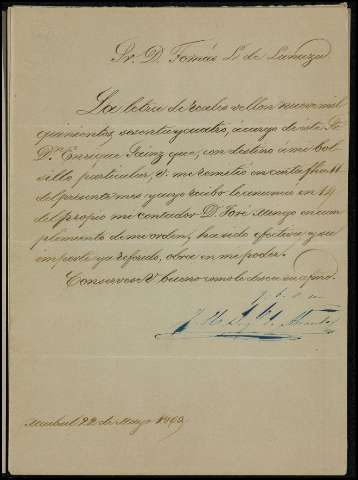 Sr. D. Tomás L. de
La letra de reales vellon nueve mil
quinientos sesenta y cuatro, á cargo de este Sr.
Dn. Enrique Sainz que, con destino á mi bol-
sillo particular, V. me remitió en carta fha 11
del presente mes y cuyo recibo le anunció en 14
del propio mi contador D. José en cum-
plimiento de mi orden, ha sido efectiva y su
importe ya referido, obra en mi poder.
Conservese V. bueno como lo desea su afmo.
q. b. s. m.
Madrid 22 de Mayo 1869